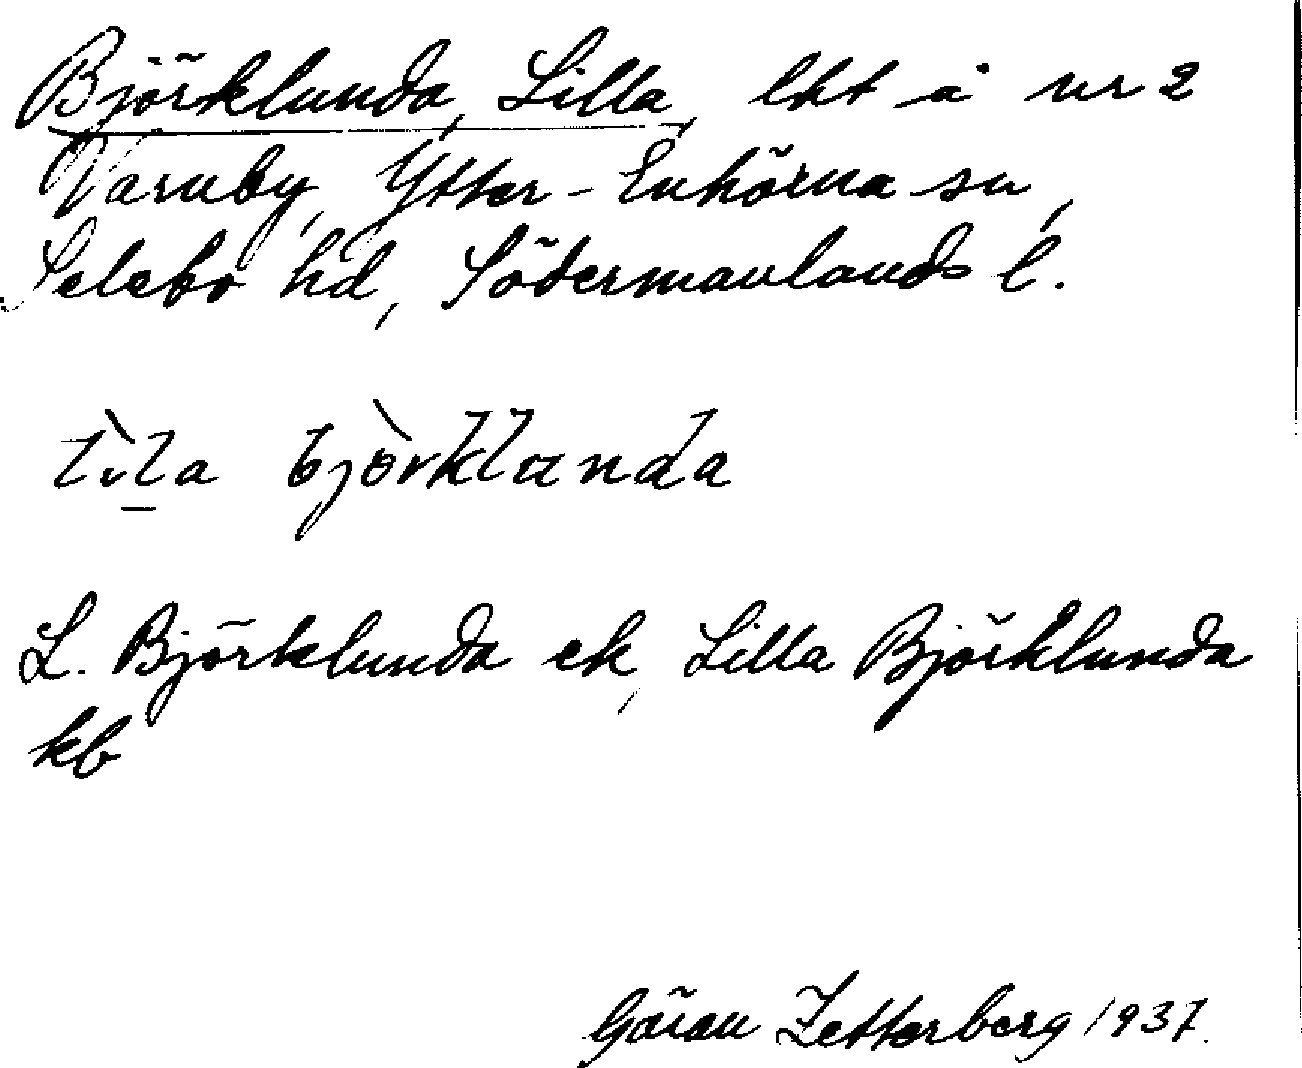 Björklunda, Lilla, lht å nr 2
Varuby, Ytter-Enhörna sn,
Selebo hd, Södermanlands l.
lìla bjòrklunda
L. Björklunda ek, Lilla Björklunda
kb
Göran Zetterberg 1937.